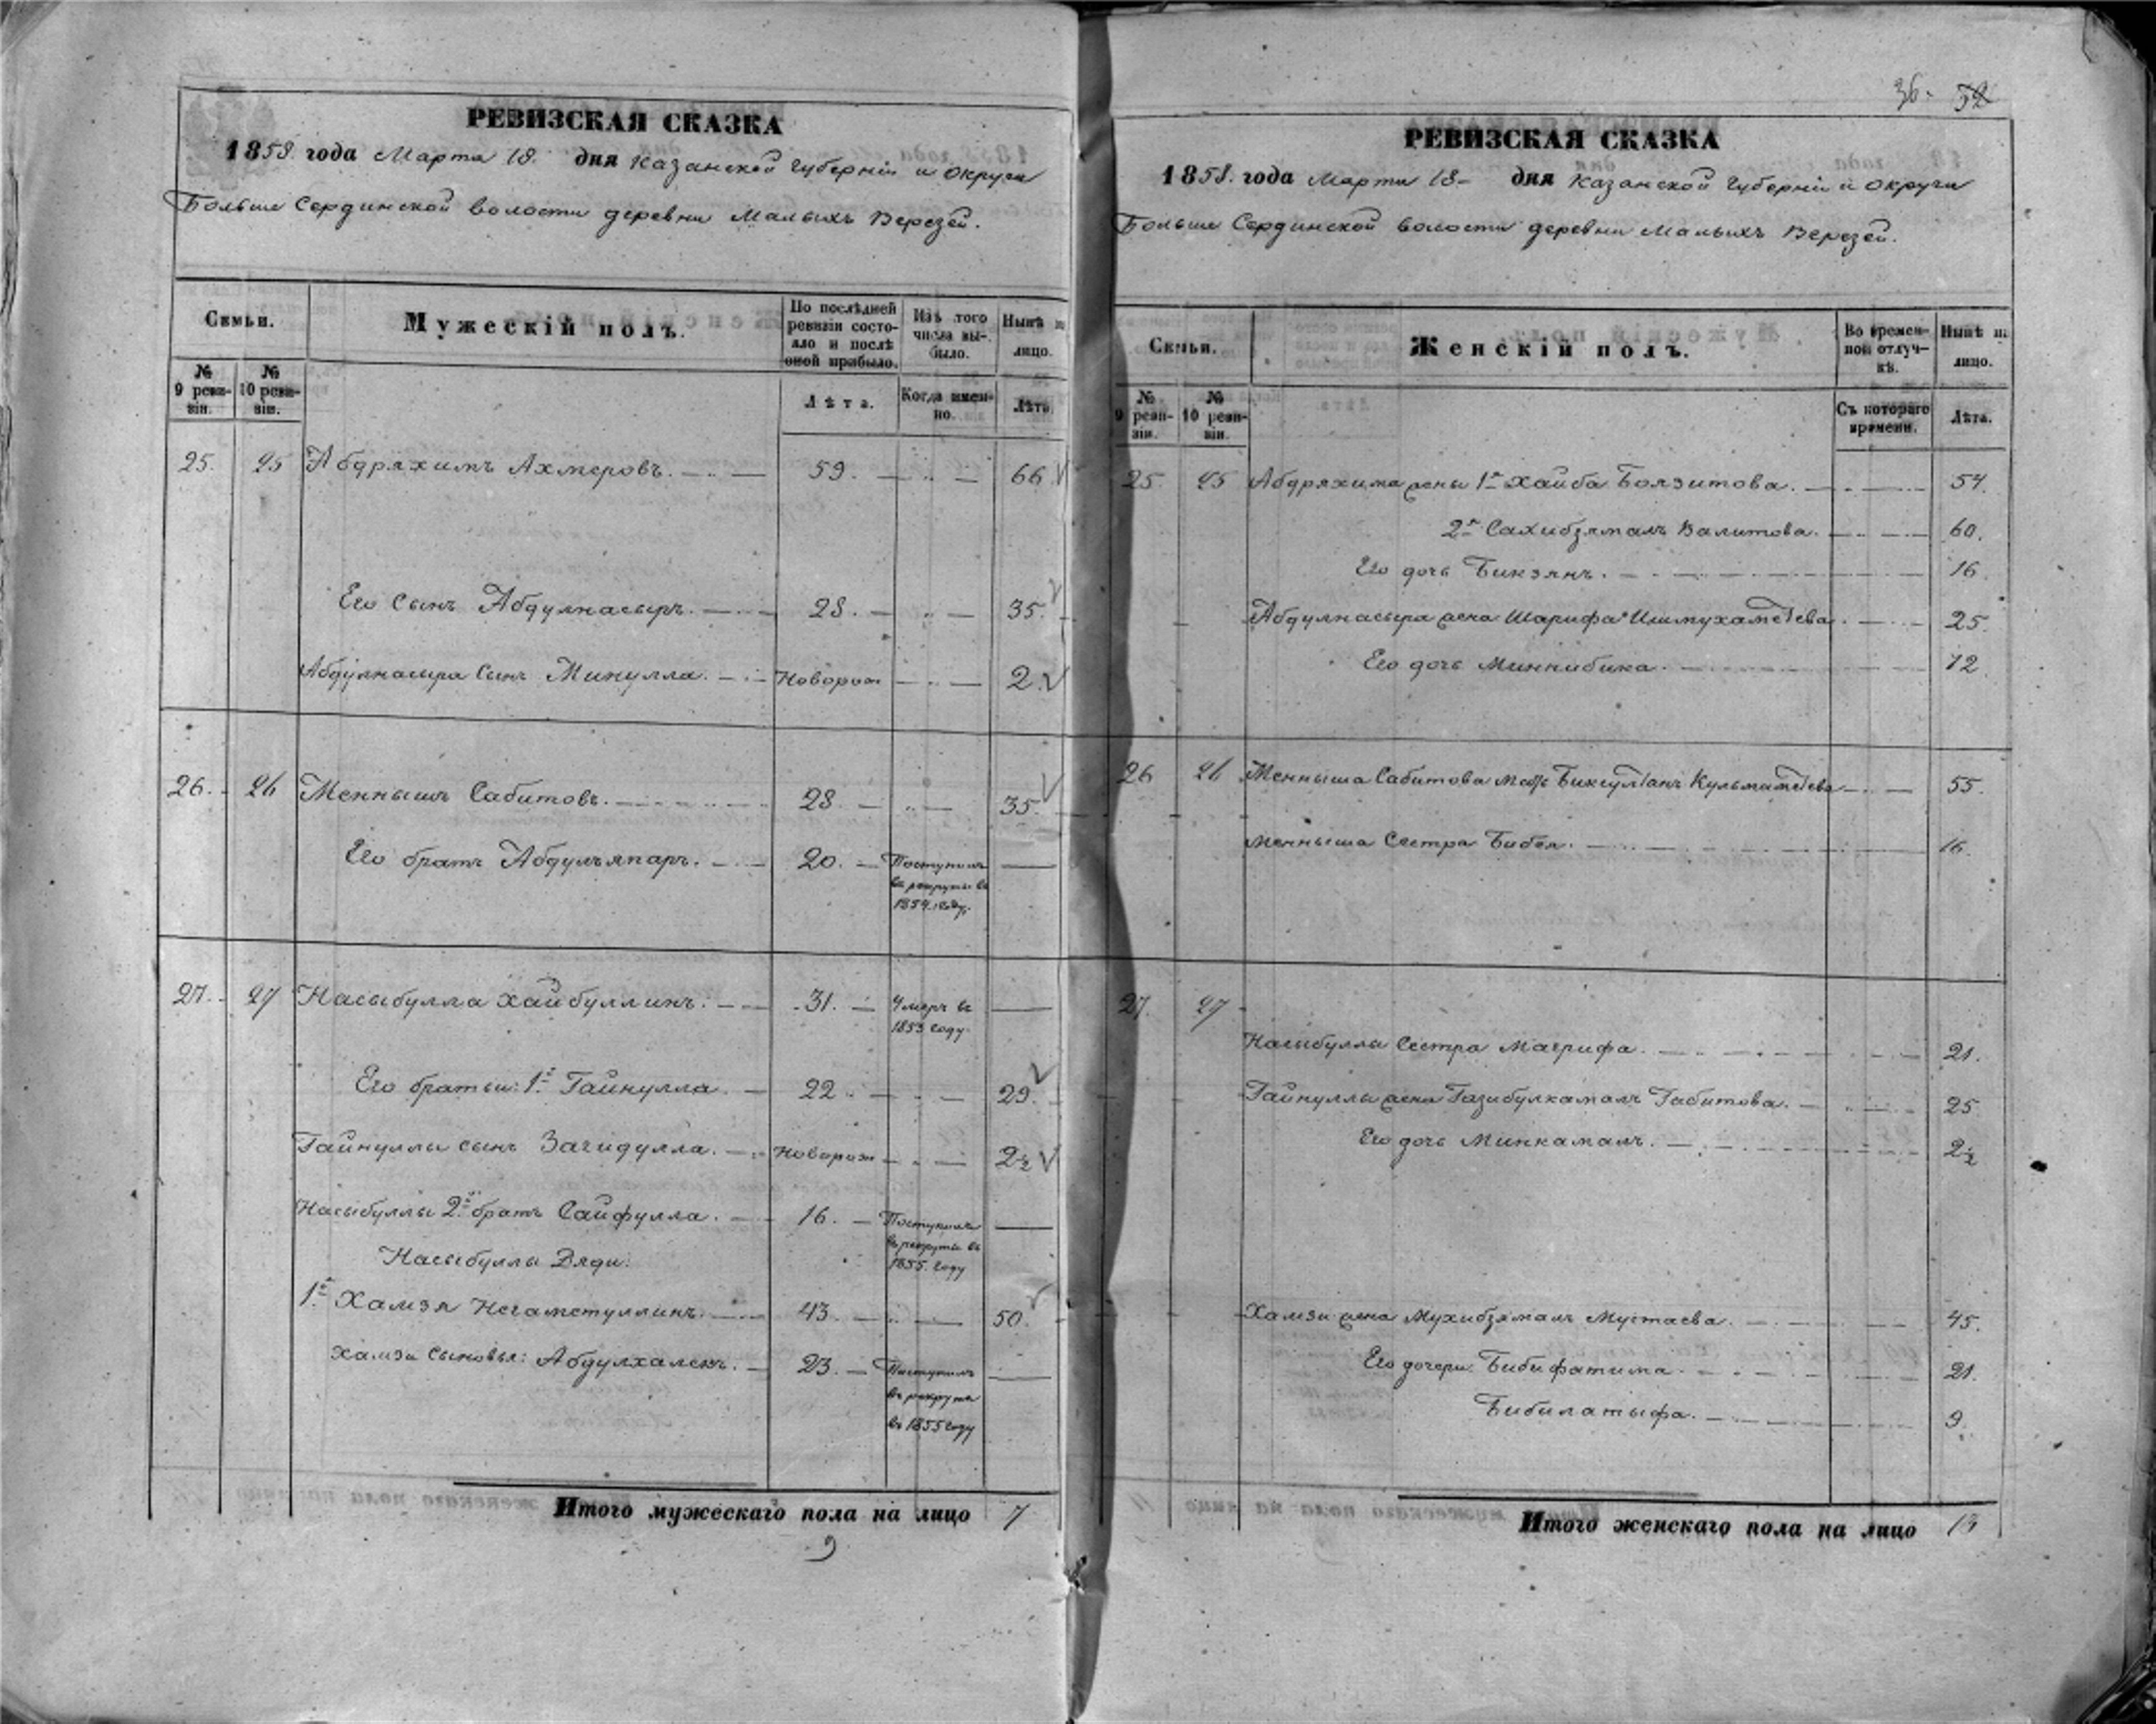 РЕВИЗСКАЯ СКАЗКА
1858 года Марта 18. дня Казанской Губерніи и Округи
Больше Сердинской волости деревни Малыхъ Верезей.
Семьи.
Мужескій полъ.
По послѣдней ревизіи состояло и послѣ оной прибыло.
Изъ того числа выбыло.
Нынѣ на лицо.
№ 9 ревизіи.
№ 10 ревизіи.
Лѣта.
Когда именно.
Лѣта.
25. 25 Абдряхимъ Ахмеровъ. 59. 66
Его Сынъ Абдулнасыръ. 28. 35.
Абдулнасыра Сынъ Минулла. Новорож 2.
26. 26 Меннышъ Сабитовъ. 28. 35.
Его братъ Абдулъяпаръ. 20. Поступилъ
въ рекруты въ
1854. году.
27. 27 Насыбулла Хайбуллинъ. 31. Умеръ въ
1853 году.
Его братья: 1й Гайнулла. 22. 29.
Гайнуллы сынъ Загидулла. Новорож 2½
Насыбуллы 2й братъ Сайфулла. 16. Поступилъ
въ рекруты въ
1855. году
Насыбуллы Дяди:
1й Хамзя Негаметуллинъ. 43. 50.
Хамзи Сыновья: Абдулхаленъ. 23. Поступилъ
въ рекруты
въ 1855 году
Итого мужескаго пола на лицо 7
36. 52
РЕВИЗСКАЯ СКАЗКА
1858. года Марта 18 дня Казанской Губерніи и Округи
Больше Сердинской волости деревни Малыхъ Верезей.
Семьи.
Женскій полъ.
Во временной отлучкѣ.
Нынѣ на лицо.
№ 9 ревизіи.
№ 10 ревизіи.
Съ котораго времени.
Лѣта.
25. 25 Абдряхима жены 1я Хайба Боязитова. 54.
2я Сахибзямалъ Валитова. 60.
Его дочь Бикзянъ. 16.
Абдулнасыра жена Шарифа Ишмухаметева. 25.
Его дочь Миннибика. 12.
26 26 Менныша Сабитова мать Биксултанъ Кульмаметева 55.
Менныша Сестра Бибея. 16.
27. 27
Насыбуллы Сестра Магрифа. 21.
Гайнуллы жена Газибулкамалъ Габитова. 25
Его дочь Минкамалъ. 2½
Хамзи жена Мухибзямалъ Мустаева. 45.
Его дочери: Бибифатима. 21.
Бибилатыфа. 9.
Итого женскаго пола на лицо 13